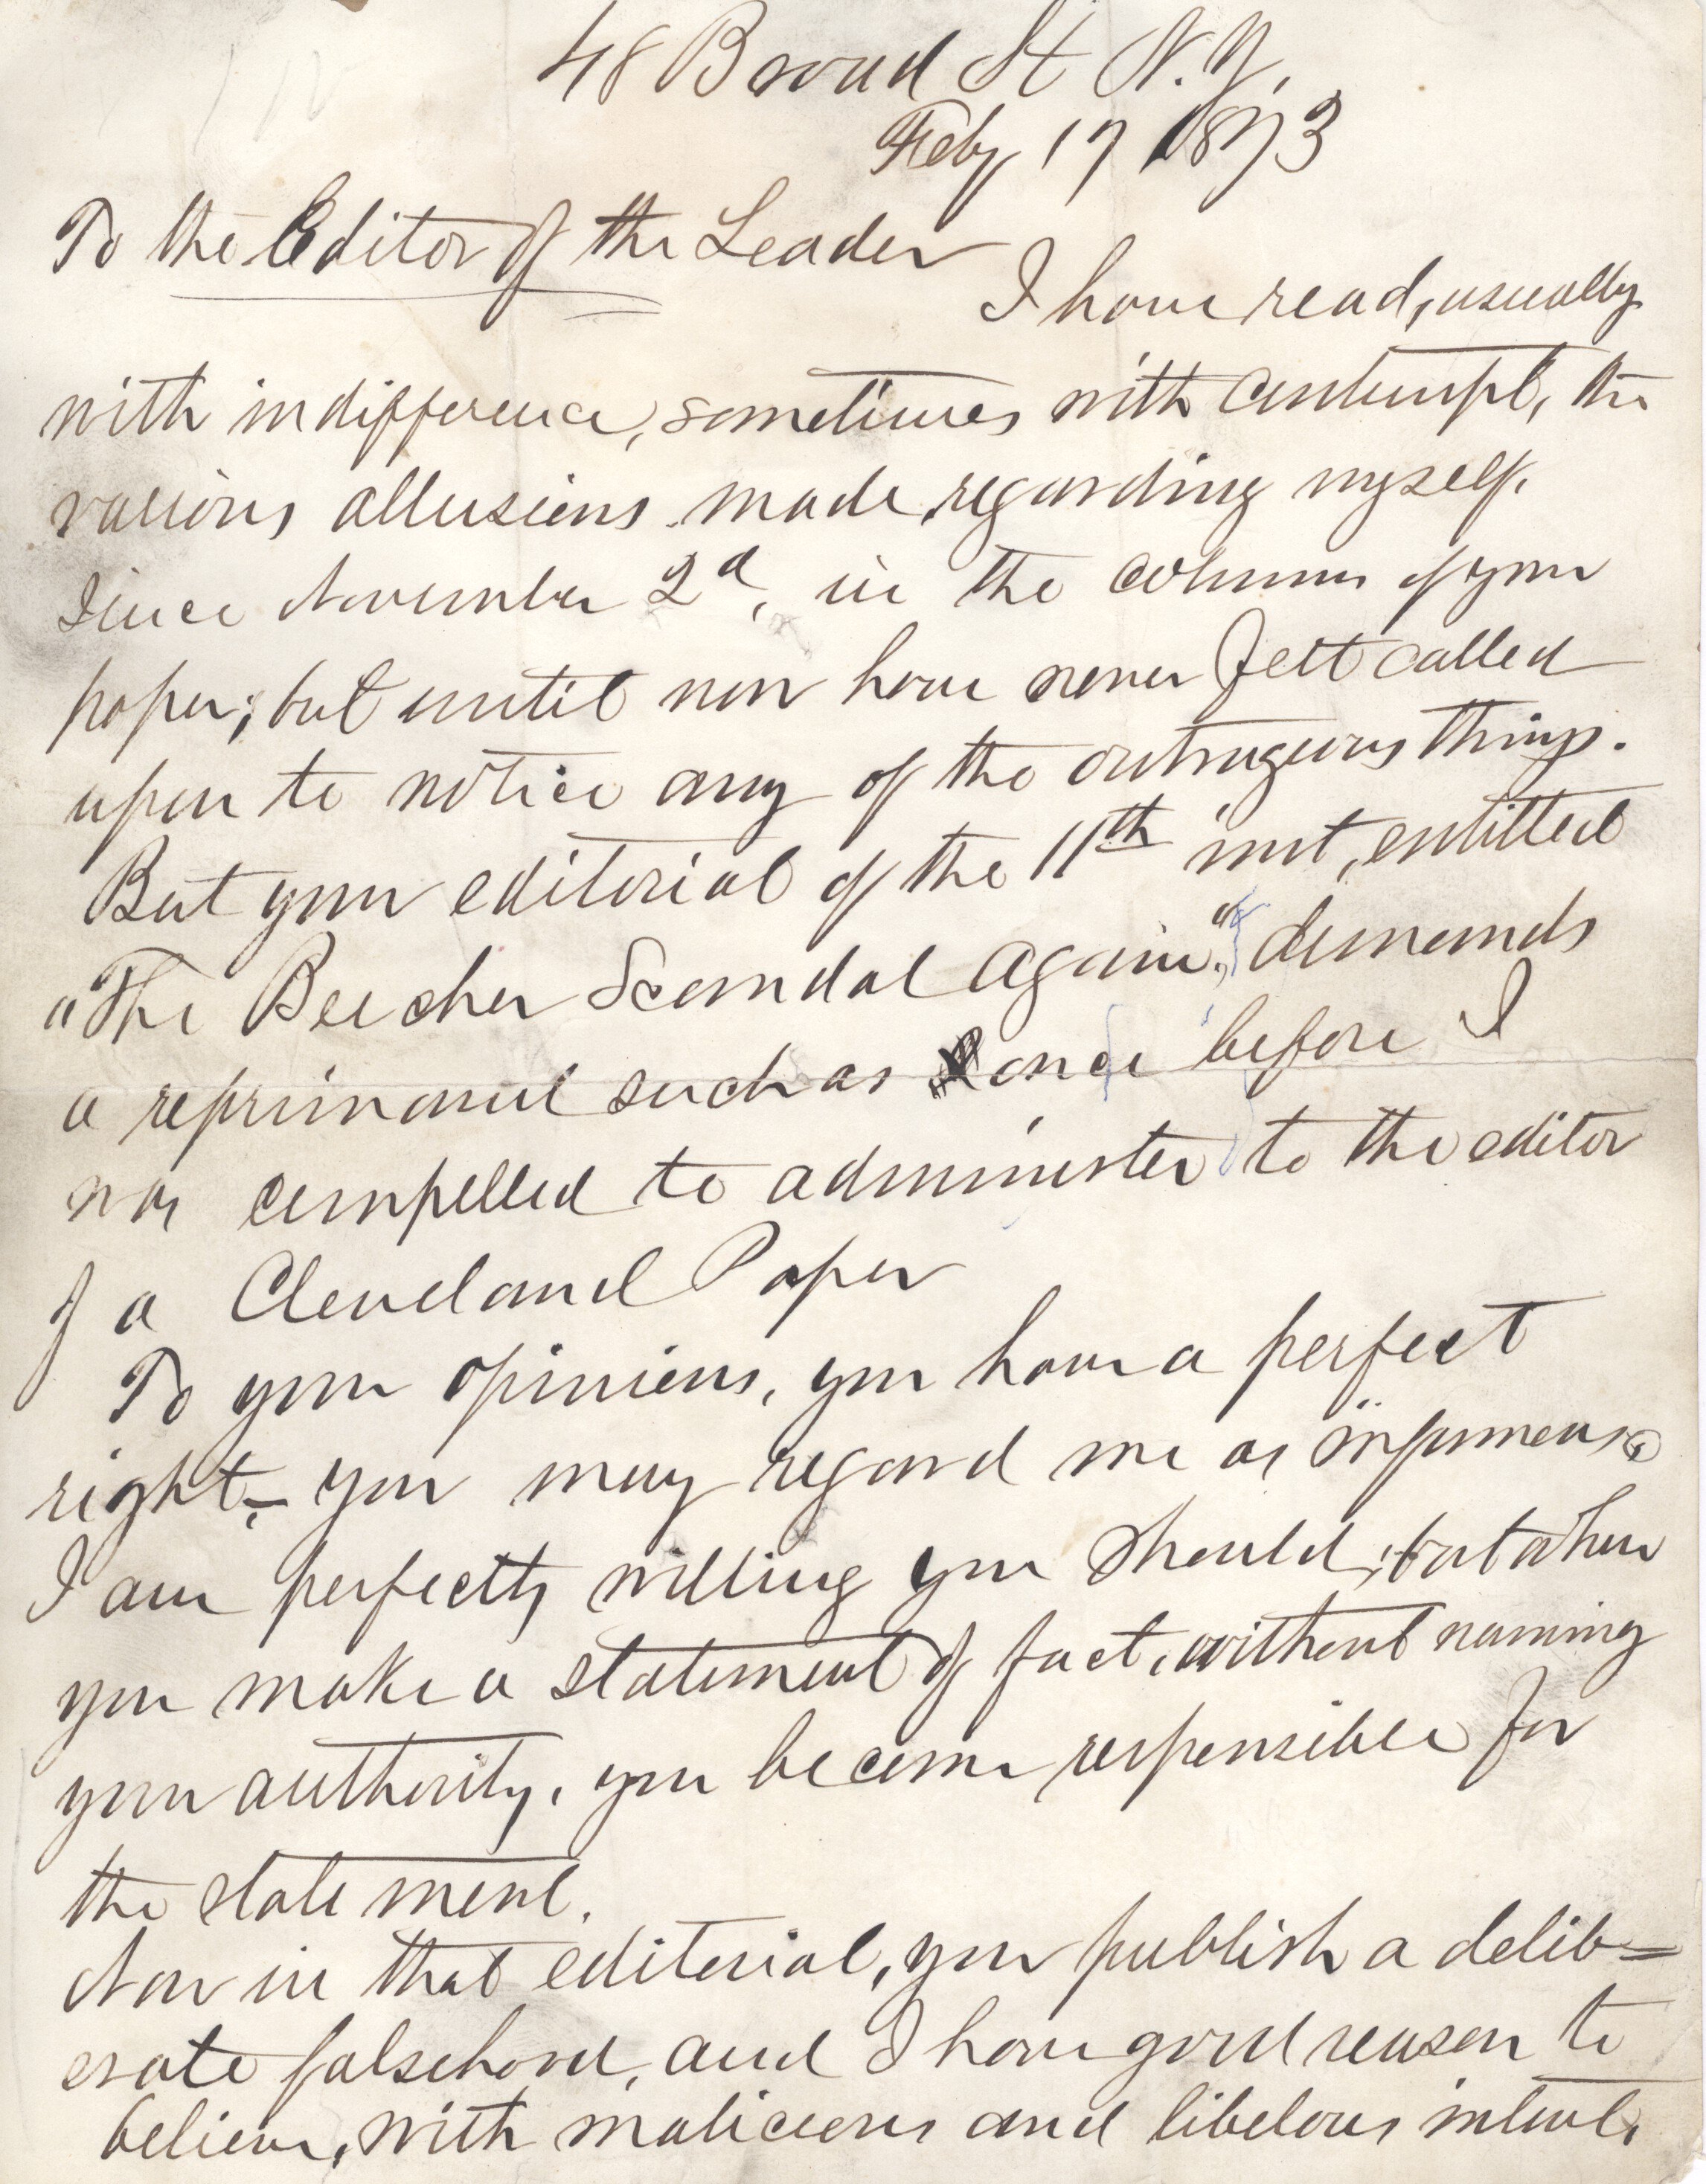 48 Broad St N.Y.
Feby 17 1873
To the Editor of the Leader
I have read, usually
with indifference, sometimes with contempt, the
various allusions made, regarding myself.
Since November 2d, in the columns of your
paper; but until now have never felt called
upon to notice any of the outrageous things.
But your editorial of the 11th inst, entitled
"The Beecher Scandal Again," demands
a reprimand such as once before I
was compelled to administer to the editor
of a Cleveland Paper
To your opinions, you have a perfect
right,- you may regard me as infamous.
I am perfectly willing you should; but when
you make a statement of fact, without naming
your authority, you become responsible for
the statement.
Now in that editorial, you publish a delib=
erate falsehood, and I have good reason to
believe, with malicious and libelous intent,